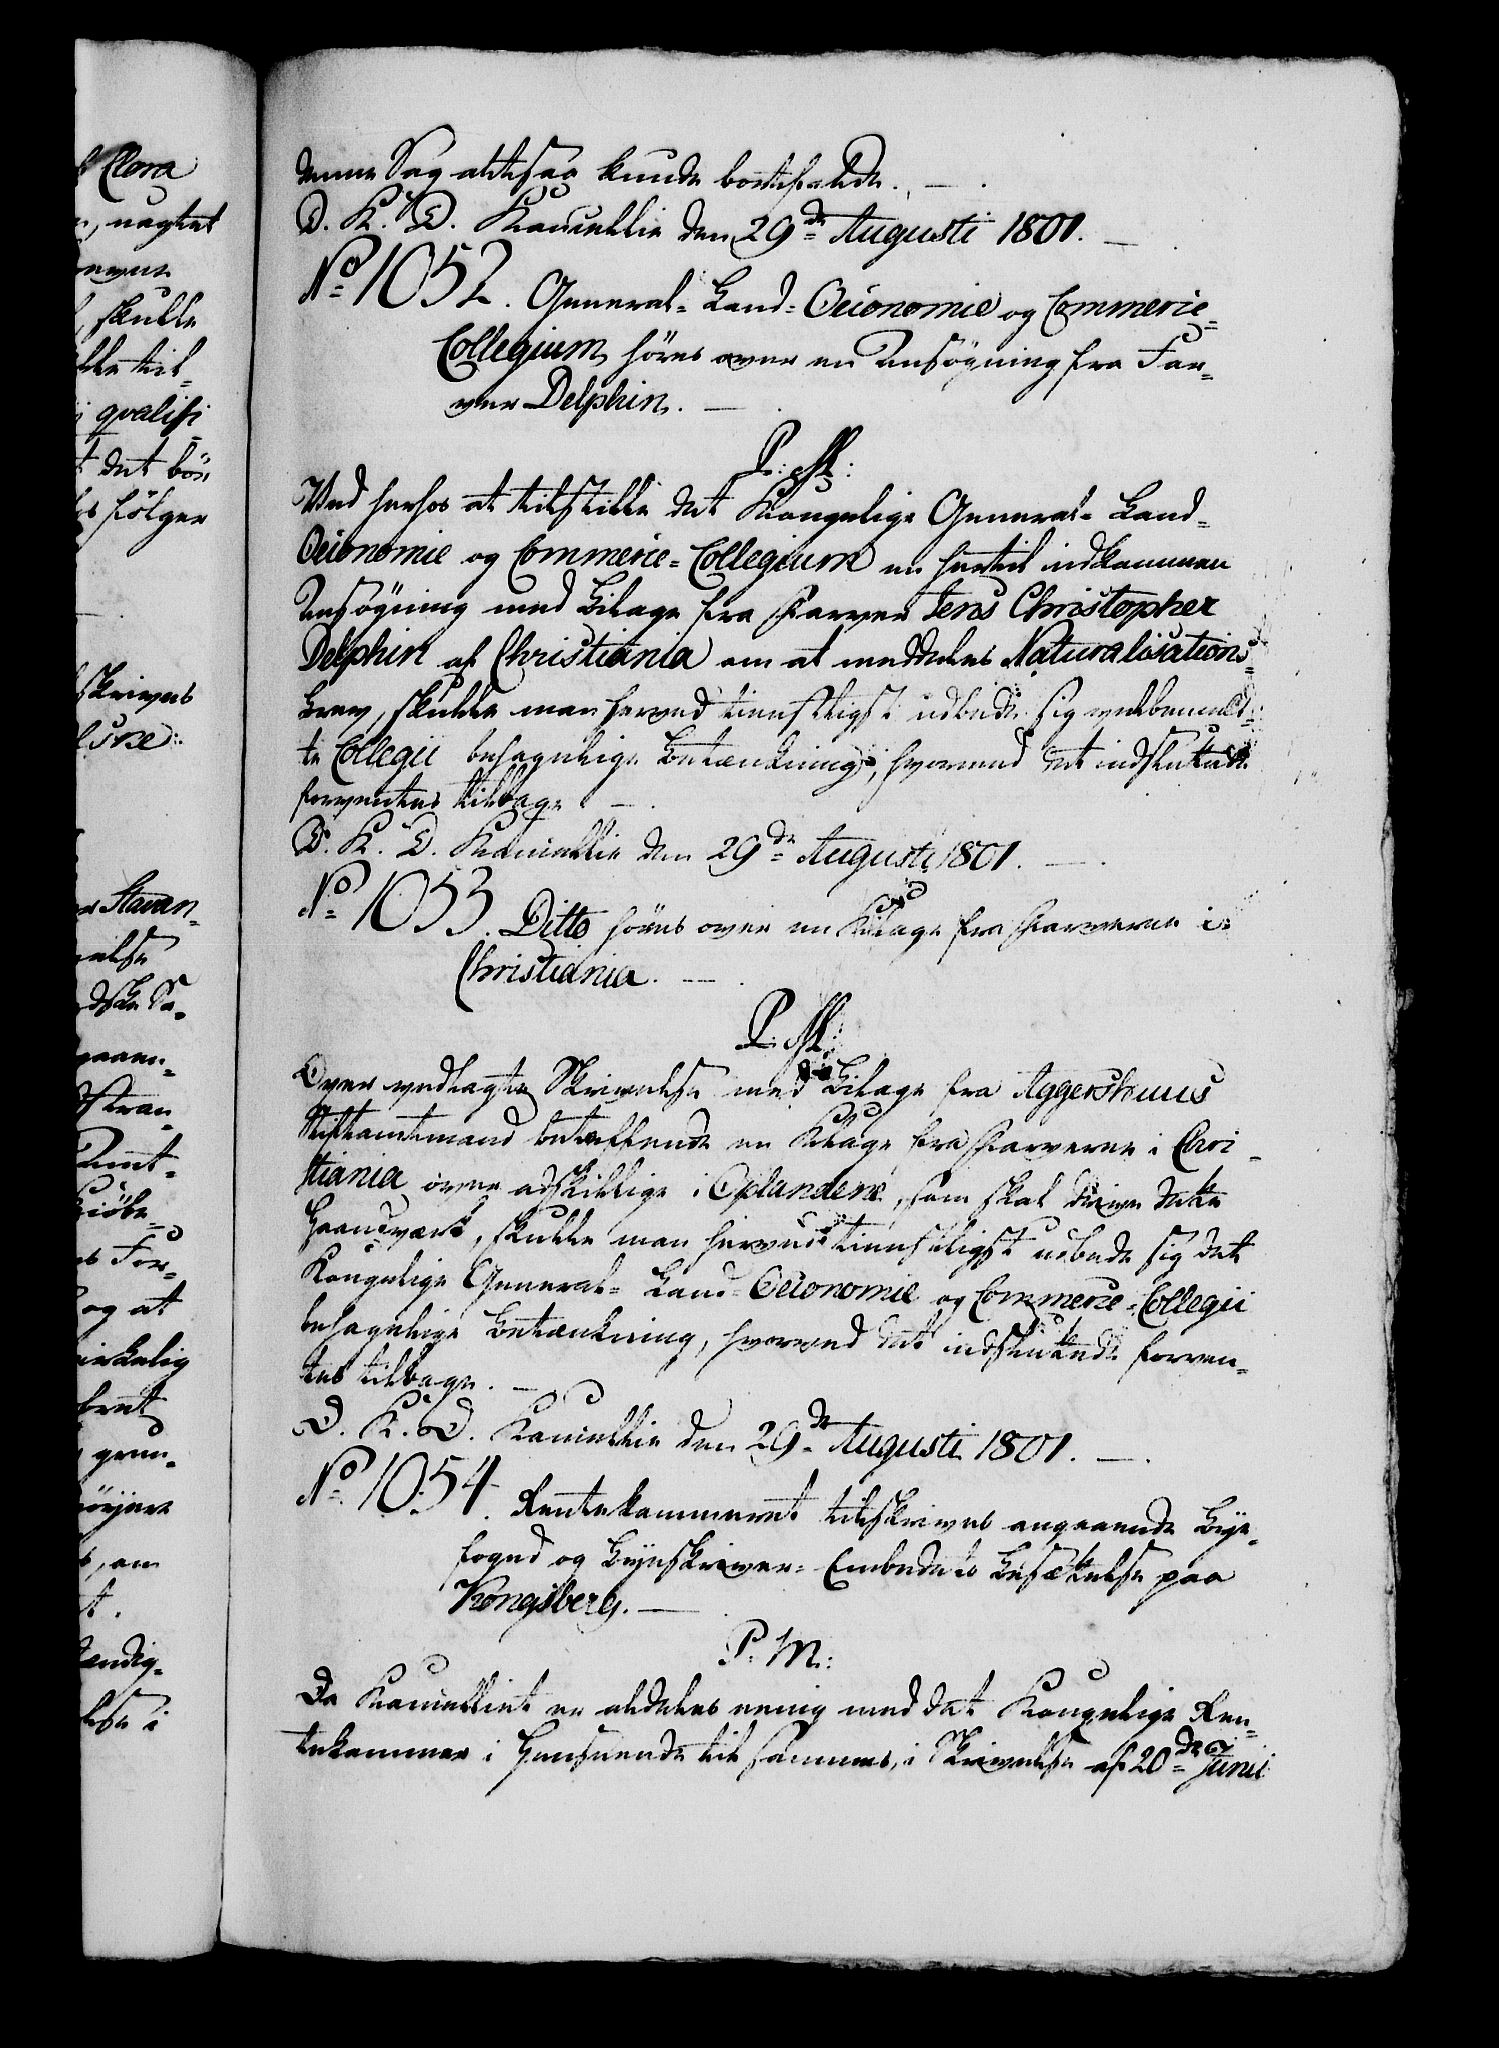 denne Sag altsaa kunde bortfalde. —
D. K. D. Kancellie den 29de Augusti 1801. —
No 1052. General-Land-Oeconomie og Commerce-
Collegium høres over en Ansøgning fra Far-
ver Delphin. —
P: M:
Ved herhos at tilstille det Kongelige General-Land-
Oeconomie og Commerce-Collegium en hertil indkommen
Ansøgning med Bilage fra Farver Jens Christopher
Delphin af Christiania om at meddeles Naturalisations-
Brev, skulle man herved tienstligst udbede sig velbemeld-
te Collegii behagelige Betænkning, hvormed det indsluttede
forventes tilbage. —
D. K. D. Kancellie den 29de Augusti 1801. —
No 1053. Ditto høres over en Klage fra Farverne i
Christiania. —
P: M:
Over vedlagte Skrivelse med Bilage fra Aggershuus
Stiftamtmand betreffende en Klage fra Farverne i Chri-
stiania over adskillige i Oplandene, som skal drive dette
Haandværk, skulle man herved tienstligst udbede sig det
Kongelige General-Land-Oeconomie og Commerce-Collegii
behagelige Betænkning, hvorved det indsluttede forven-
tes tilbage. —
D. K. D. Kancellie den 29de Augusti 1801. —
No 1054. Rentekammeret tilskrives angaaende Bye-
foged og Byeskriver-Embedets Besættelse paa
Kongsberg. —
P: M:
Da Kancelliet er aldeles eenig med det Kongelige Ren-
tekammer i Henseende til sammes, i Skrivelse af 20de Junii
Clora
, uagtet
, skulle
qvalifi-
det bör
følger
skrives
Stavan-
For-
og at
grun-
i